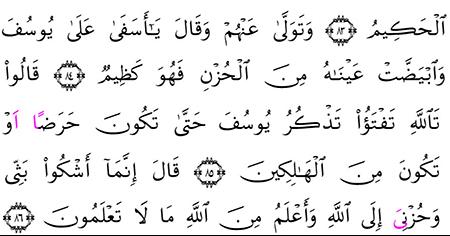 اَ۬لْحَكِيمُ ۝٨٣ وَتَوَلَّىٰ عَنْهُمْ وَقَالَ يَـٰٓأَسَفَىٰ عَلَىٰ يُوسُفَ
وَابْيَضَّتْ عَيْنَـٰهُ مِنَ الْحُزْنِ فَهُوَ كَظِيمٌ ۝٨٤ قَالُوا۟
تَاللَّهِ تَفْتَؤُا۟ تَذْكُرُ يُوسُفَ حَتَّىٰ تَكُونَ حَرَضًا اَوْ
تَكُونَ مِنَ الْهَـٰلِكِينَ ۝٨٥ قَالَ إِنَّمَآ أَشْكُوا۟ بَثِّى
وَحُزْنِىَ إِلَى اللَّهِ وَأَعْلَمُ مِنَ اللَّهِ مَا لَا تَعْلَمُونَ ۝٨٦